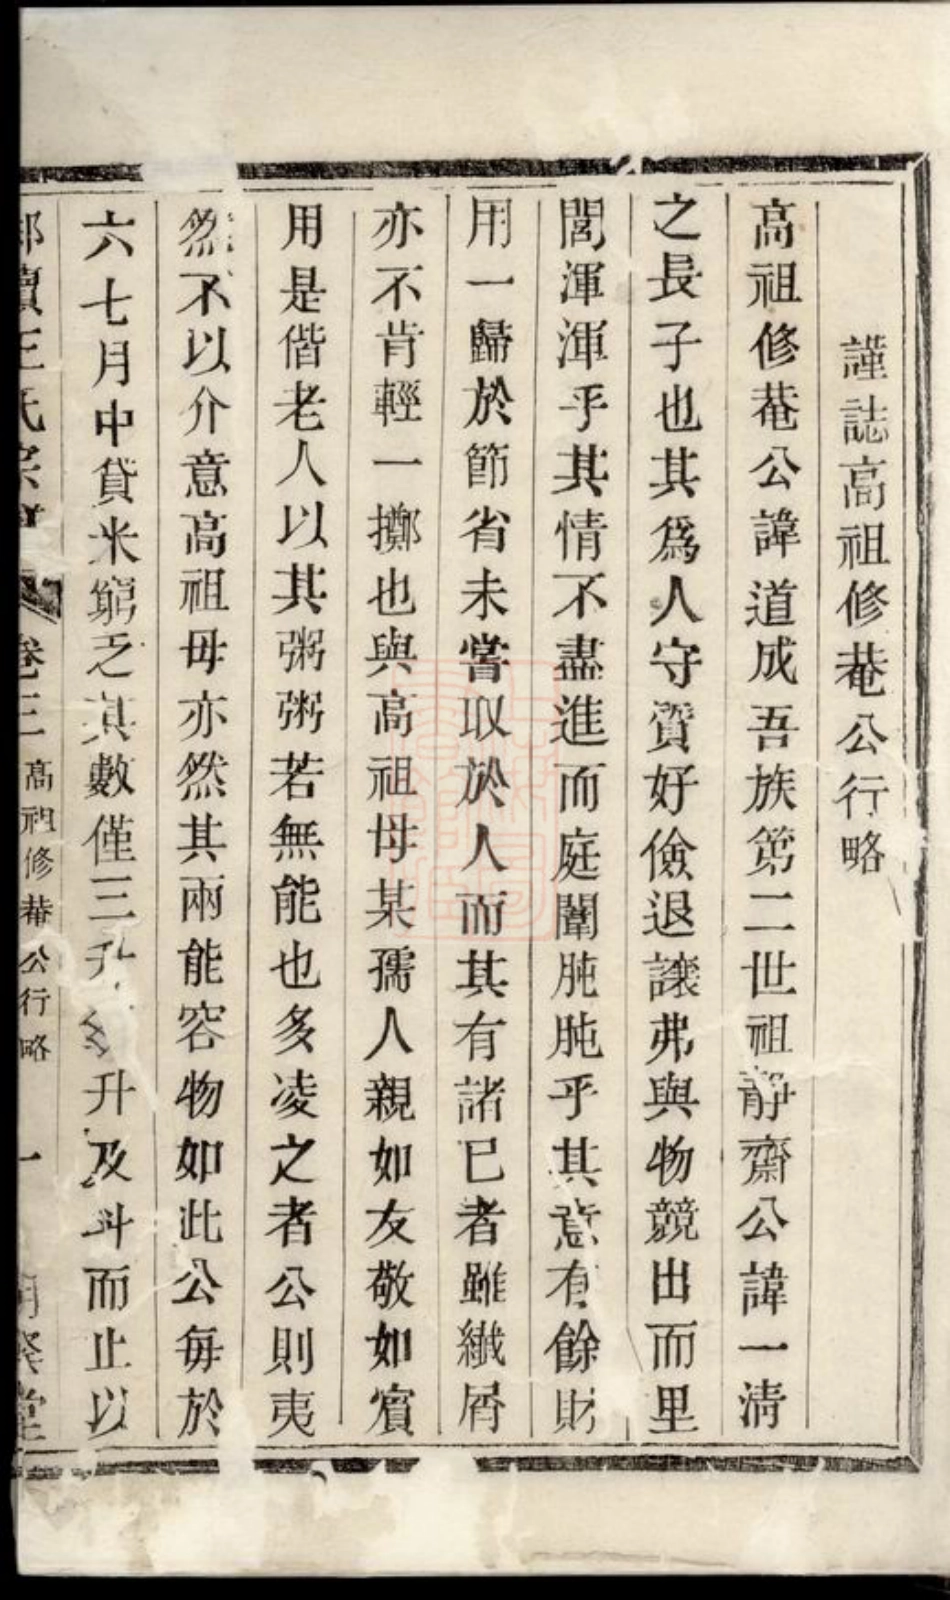 謹誌高祖修菴公行略
高祖修菴公諱道成吾族第二世祖靜齋公諱一淸
之長子也其爲人守質好儉退讓弗與物競出而里
閭渾渾乎其情不盡進而庭闈肫肫乎其意有餘財
用一歸於節省未嘗取於人而其有諸已者雖纖屑
亦不肯輕一擲也與高祖母某孺人親如友敬如賓
用是偕老人以其粥粥若無能也多凌之者公則夷
然不以介意高祖母亦然其兩能容物如此公每於
六七月中貸米窮乏其數僅三升升及斗而止以
王氏宗 卷三 高祖修菴公行略 一 堂